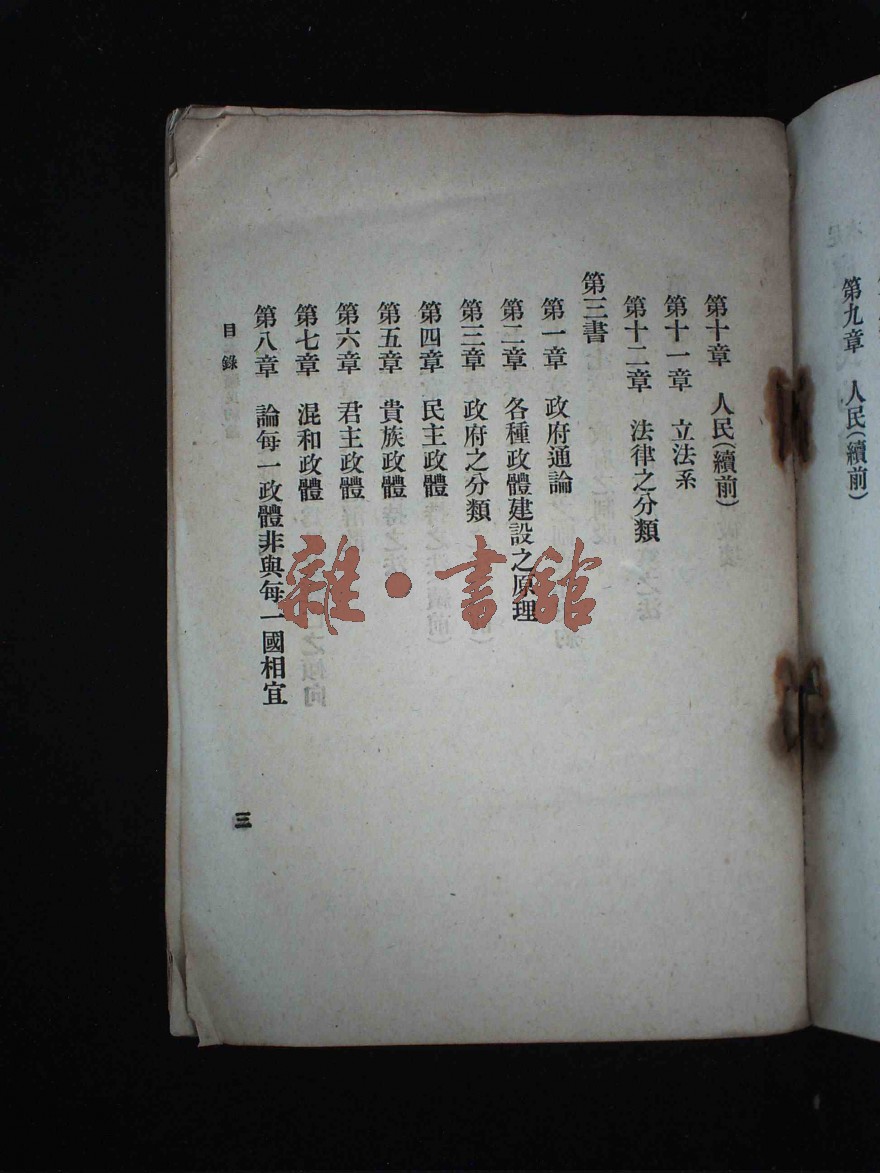 第九章　人民(續前)
第十章　人民(續前)
第十一章　立法系
第十二章　法律之分類
第三書
第一章　政府通論
第二章　各種政體建設之原理
第三章　政府之分類
第四章　民主政體
第五章　貴族政體
第六章　君主政體
第七章　混和政體
第八章　論每一政體非與每一國相宜
目錄
三
雜·書館